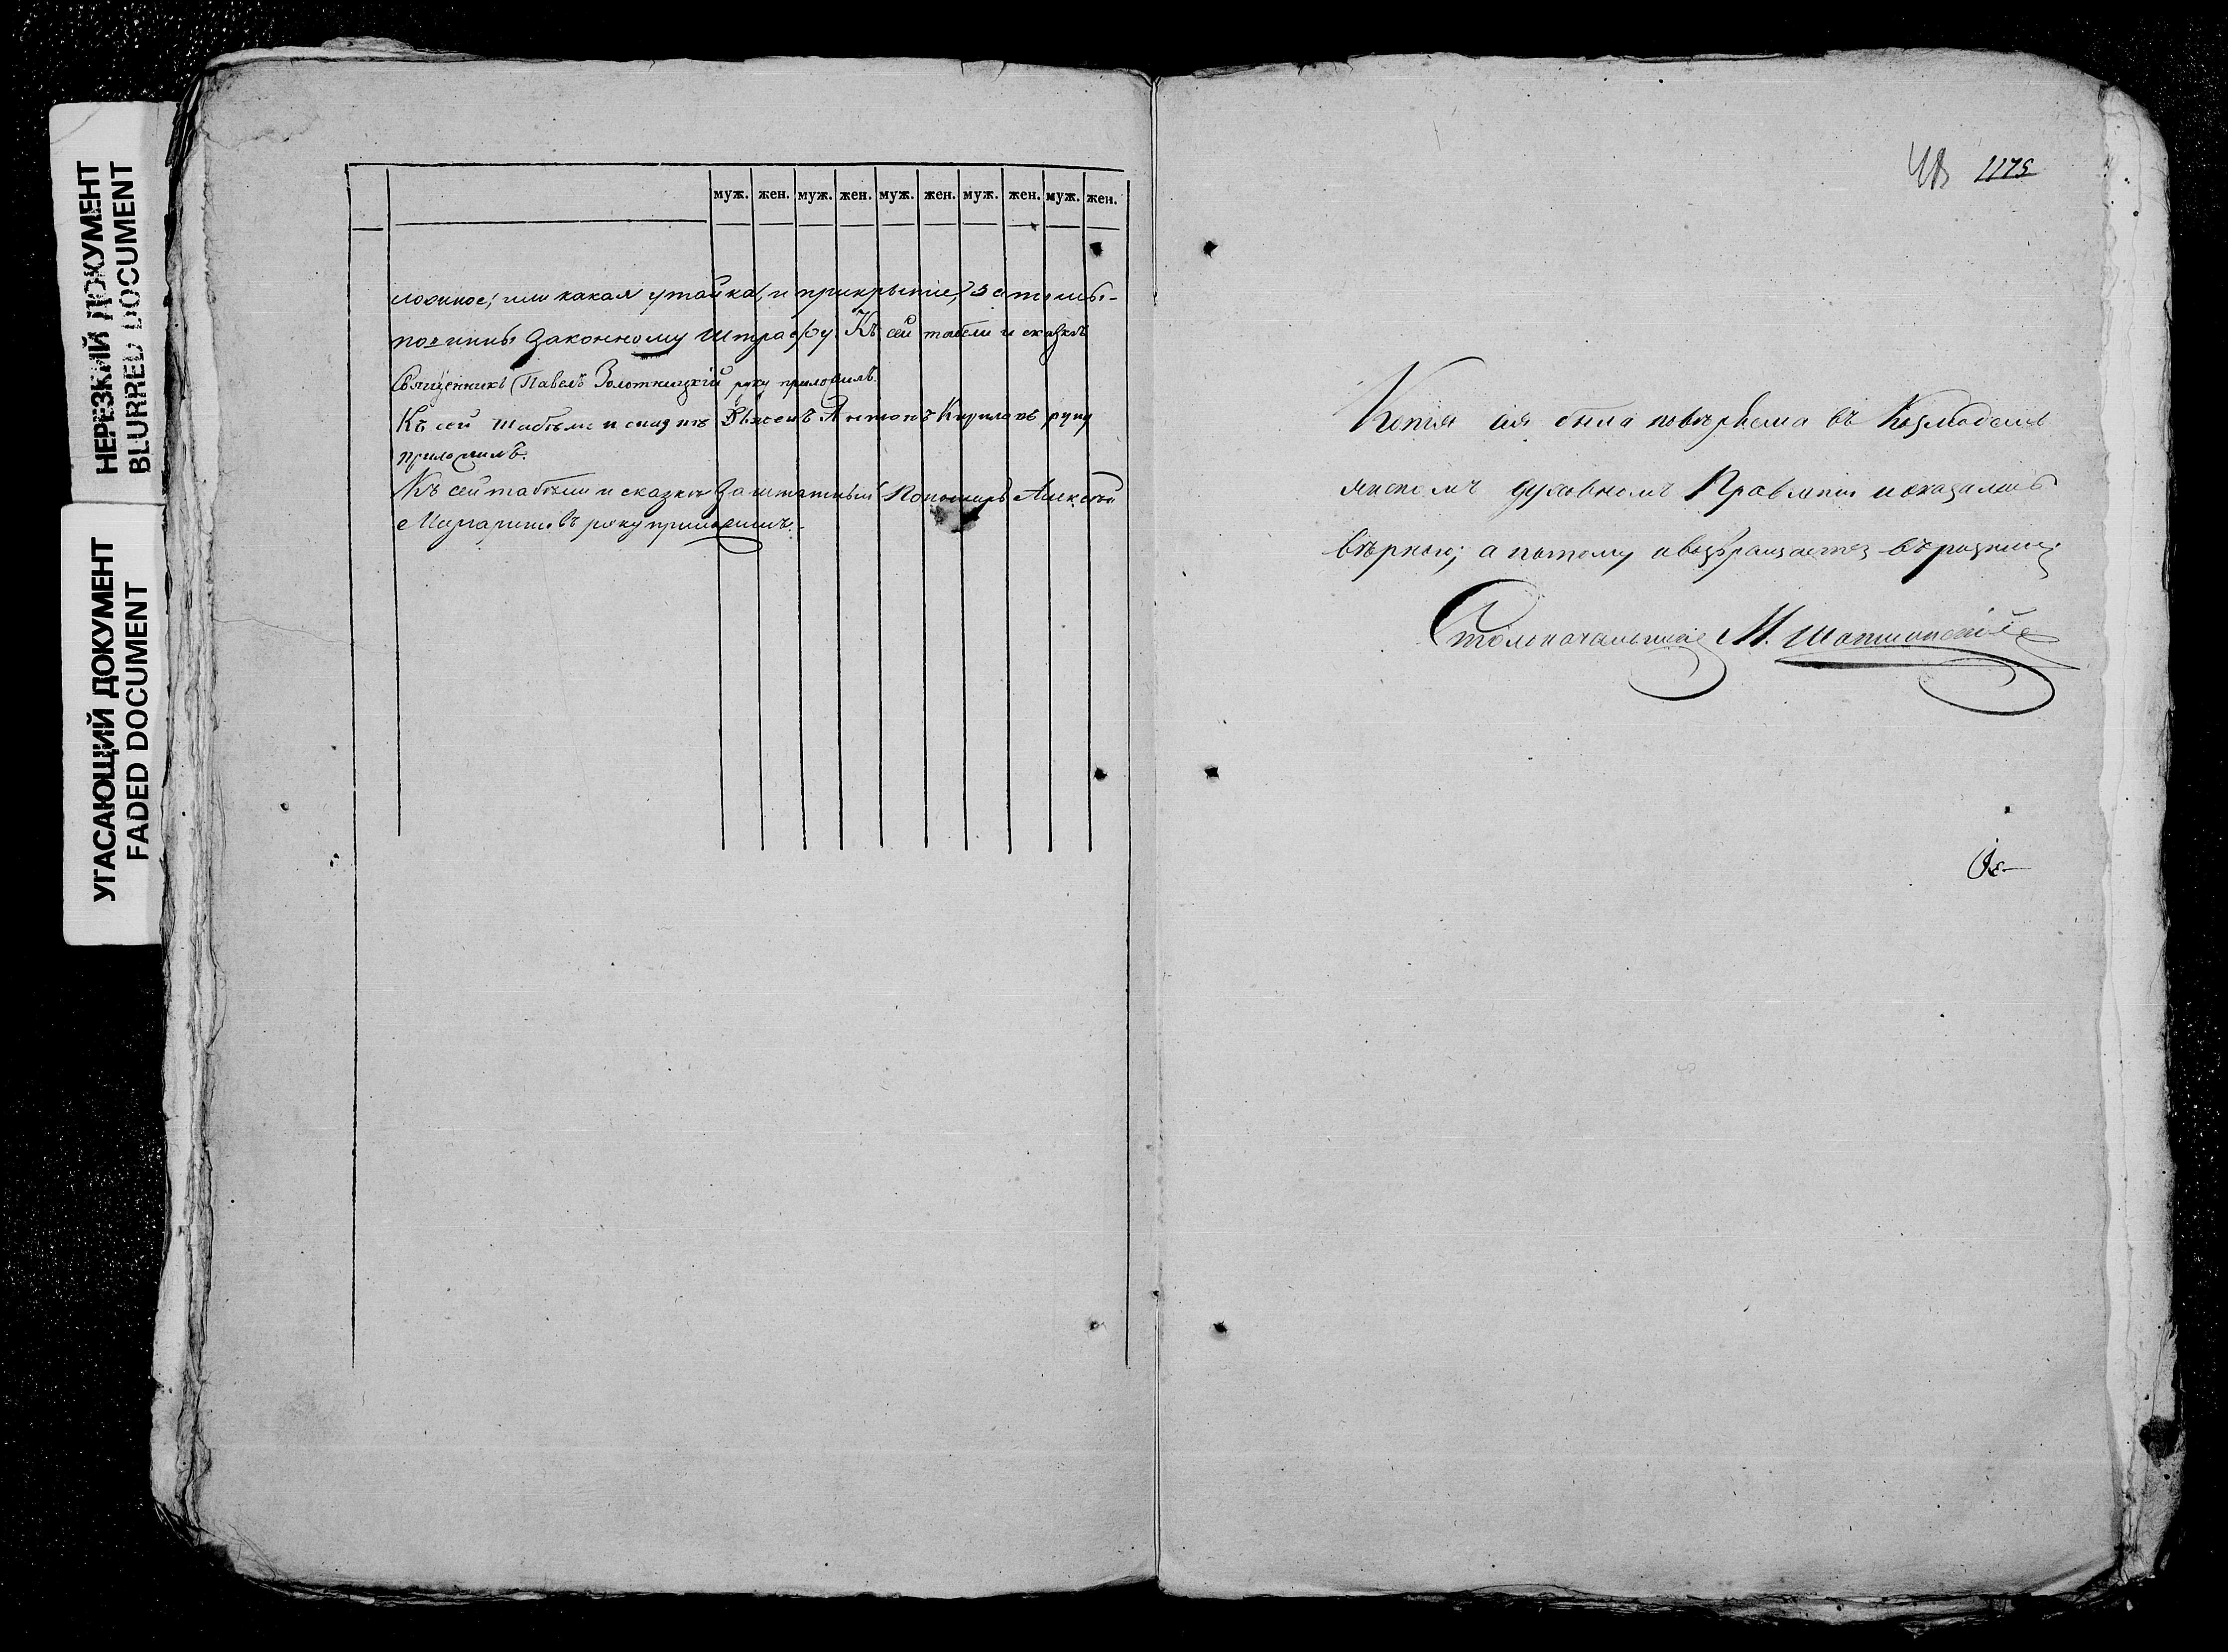 НЕРЕЗКИЙ ДОКУМЕНТ
BLURRED DOCUMENT
УГАСАЮЩИЙ ДОКУМЕНТ
FADED DOCUMENT
муж. жен. муж. жен. муж. жен. муж. жен. муж. жен.
ложное, или какая утайка, и прикрытие, за то
законному штрафу. Къ сей табели и сказкѣ
Священникъ Павелъ Золотницкій руку приложилъ.
Къ сей и Антонъ Кириловъ руку
приложилъ.
Къ сей табели и сказкѣ Заштатный Пономарь Алексѣй
Маргаритовъ руку приложилъ.
1175
Копія сія была повѣряема въ Козмодемь
янскомъ духовномъ Правленіи и оказалась
вѣрною; а потому и возвращается въ
Столоначальникъ М.